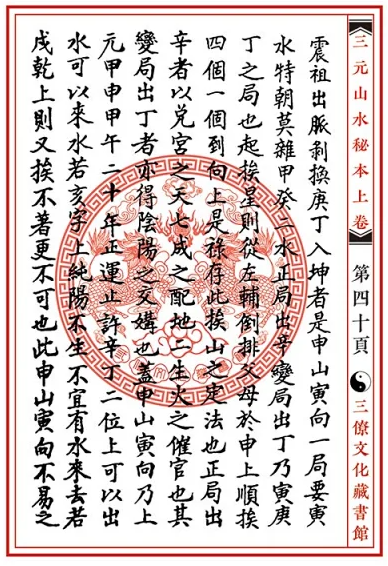 三元山水秘本上卷
第四十頁
三僚文化藏書館
震祖出脈剥換庚丁入坤者是申山寅向一局要寅
水特朝莫雜甲癸二水正局出辛變局出丁乃寅庚
丁之局也起挨星則從左輔倒排父母於申上順挨
四個一個到向上是祿存此挨山之定法也正局出
辛者以兑宮之天七成之配地二生火之催官也其
變局出丁者亦得陰陽之交媾也蓋申山寅向乃上
元甲申甲午二十年正運止許辛丁二位上可以出
水可以來水若亥字上純陽不生不宜有水來去若
戌乾上則又挨不著更不可也此申山寅向不易之